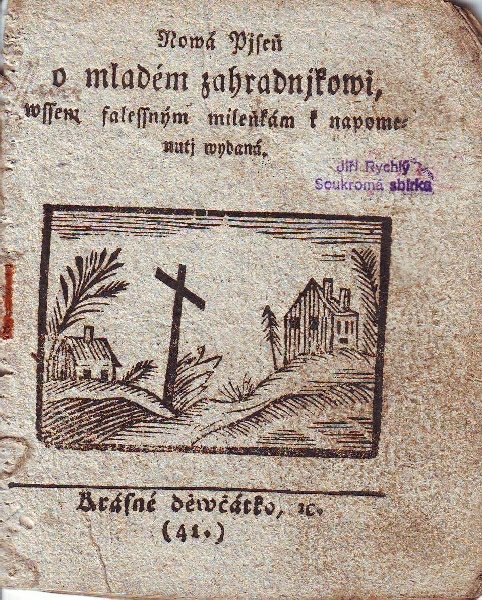 Nowá Pjseň
o mladém zahradnjkowi,
wssem falessným mileňkám k napome-
nutj wydaná.
Jiří Rychlý
Soukromá sbírka
Krásné děwčátko, ꝛc.
(41.)